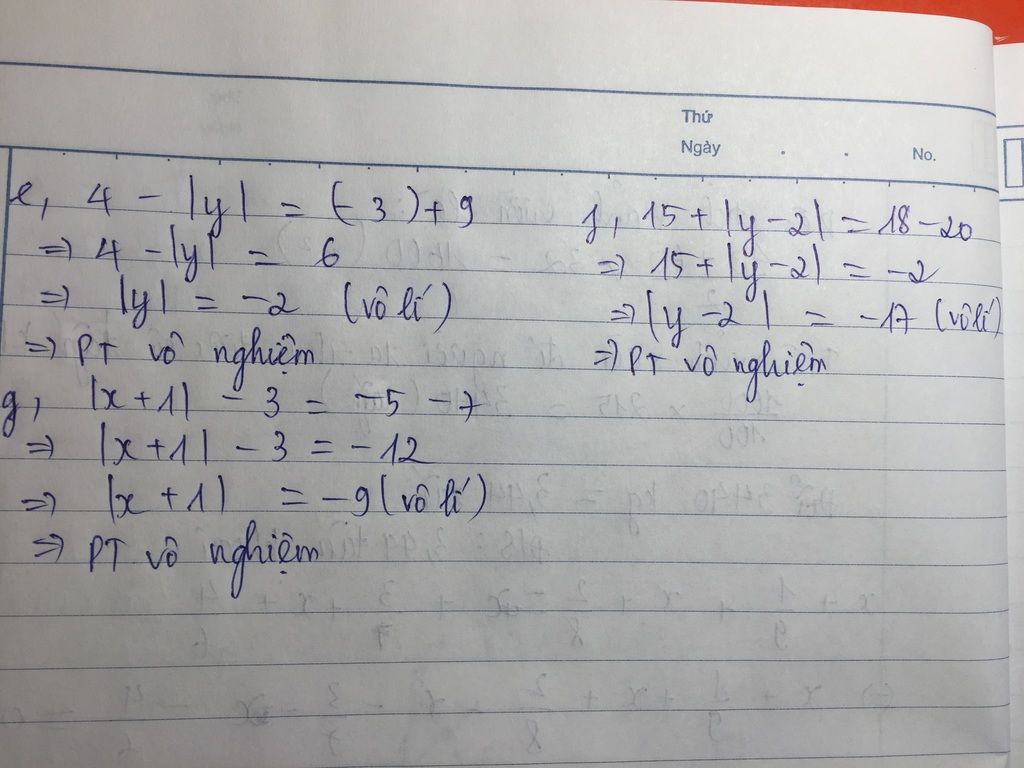 Thứ
Ngày . . No.
e, 4 - |y| = (-3)+9
=> 4 - |y| = 6
=> |y| = -2 (vô lí)
=> PT vô nghiệm
f, 15+|y-2| = 18-20
=> 15+|y-2| = -2
=> |y-2| = -17 (vô lí)
=> PT vô nghiệm
g, |x+1| - 3 = -5 -7
=> |x+1| - 3 = -12
=> |x+1| = -9 (vô lí)
=> PT vô nghiệm